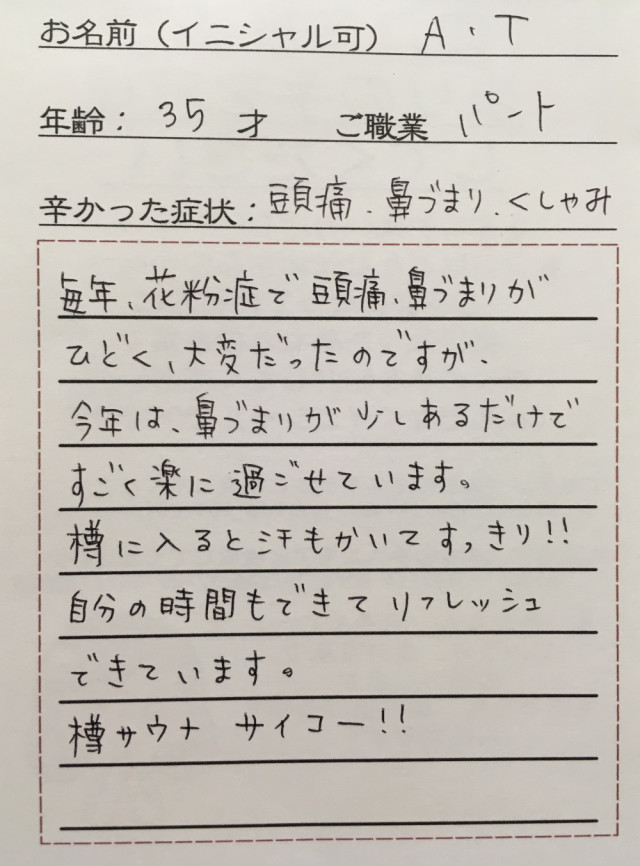 お名前（イニシャル可） A・T
年齢： 35 才 ご職業 パート
辛かった症状：頭痛、鼻づまり、くしゃみ
毎年、花粉症で頭痛、鼻づまりが
ひどく、大変だったのですが、
今年は、鼻づまりが少しあるだけで
すごく楽に過ごせています。
樽に入ると汗もかいてすっきり!!
自分の時間もできてリフレッシュ
できています。
樽サウナ サイコー!!